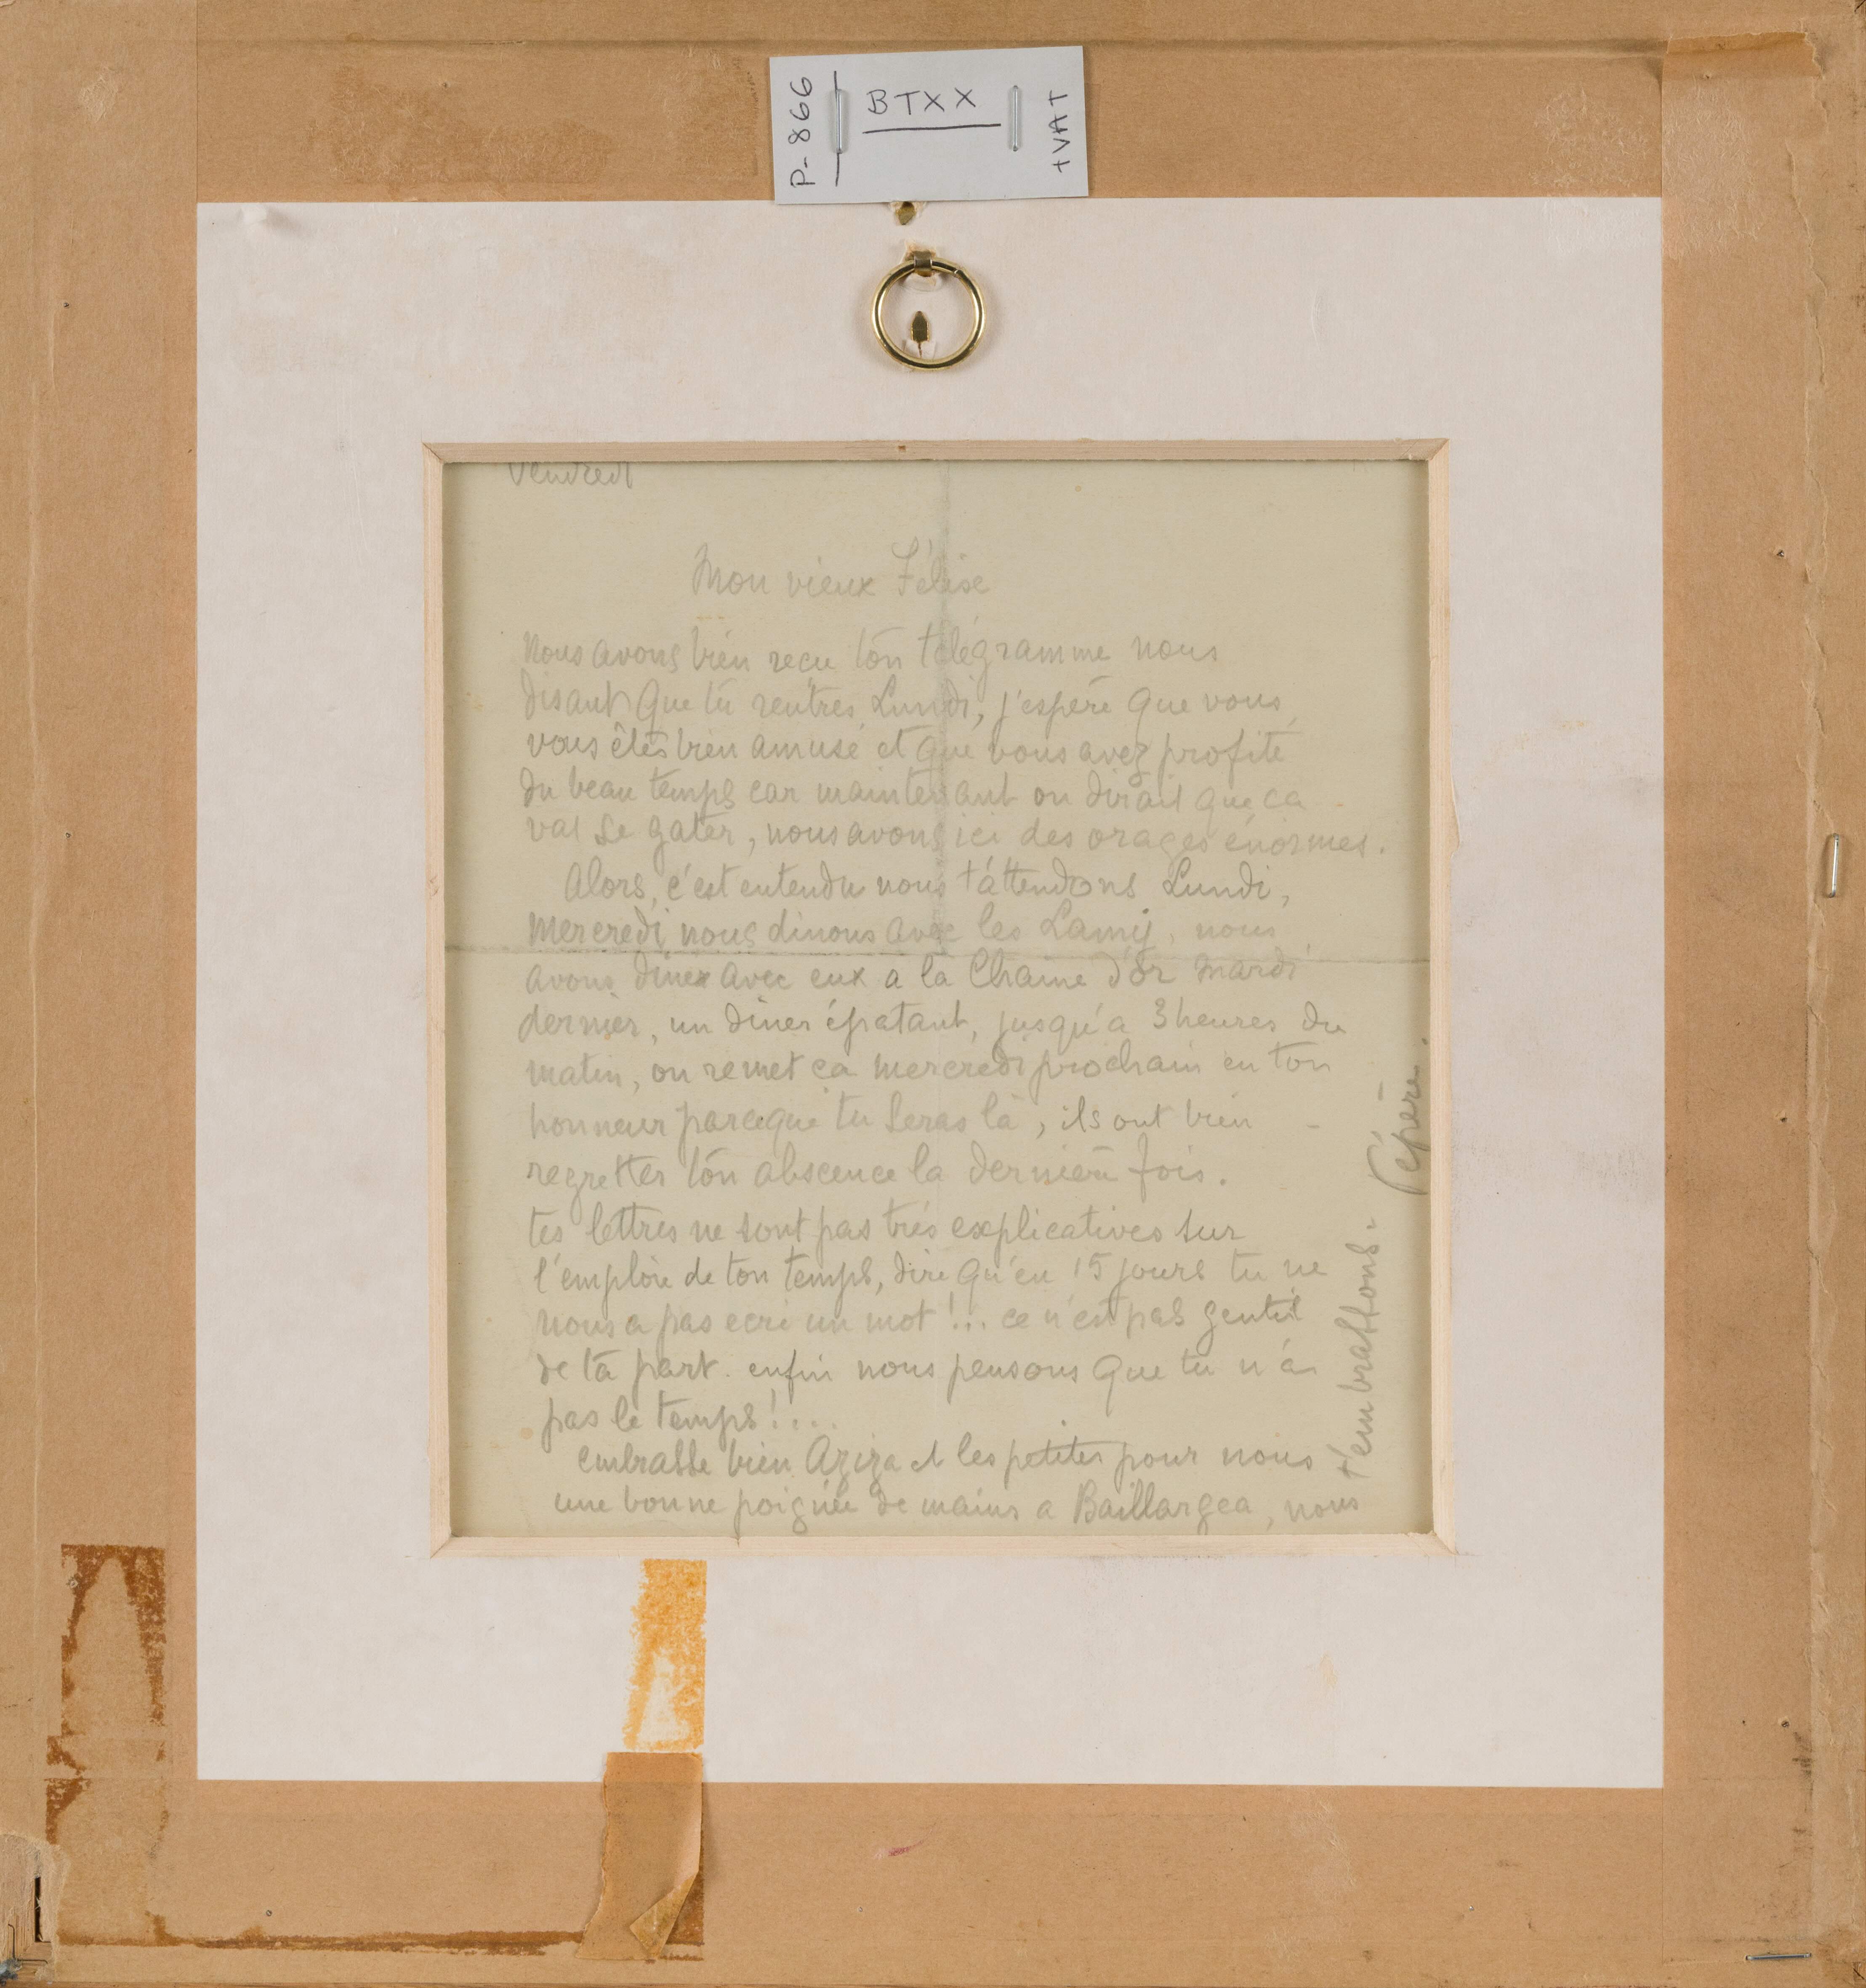 P-866
BTXX
+VAT
Vendredi
Mon vieux Félise
Nous avons bien reçu ton télégramme nous
disant que tu rentres Lundi, j'espère que vous
vous êtes bien amusé et que vous avez profité
du beau temps car maintenant on dirait que ca
vas se gater, nous avons ici des orages énormes.
Alors, c'est entendu nous t'attendons Lundi,
mercredi nous dinons avec les Lamy, nous
avons diner avec eux a la Chaine d'or mardi
dernier, un diner épatant, jusqu'a 3 heures du
matin, on remet ca mercredi prochain en ton
honneur parceque tu seras là, ils ont bien
regretter ton abscence la dernière fois.
tes lettres ne sont pas très explicatives sur
l'emploie de ton temps, dire qu'en 15 jours tu ne
nous a pas ecri un mot !... ce n'est pas gentil
de ta part. enfin nous pensons que tu n'a
pas le temps !....
embrasse bien Aziza et les petites pour nous
une bonne poignée de mains a Baillargea, nous
t'embrassons.
Pépère.